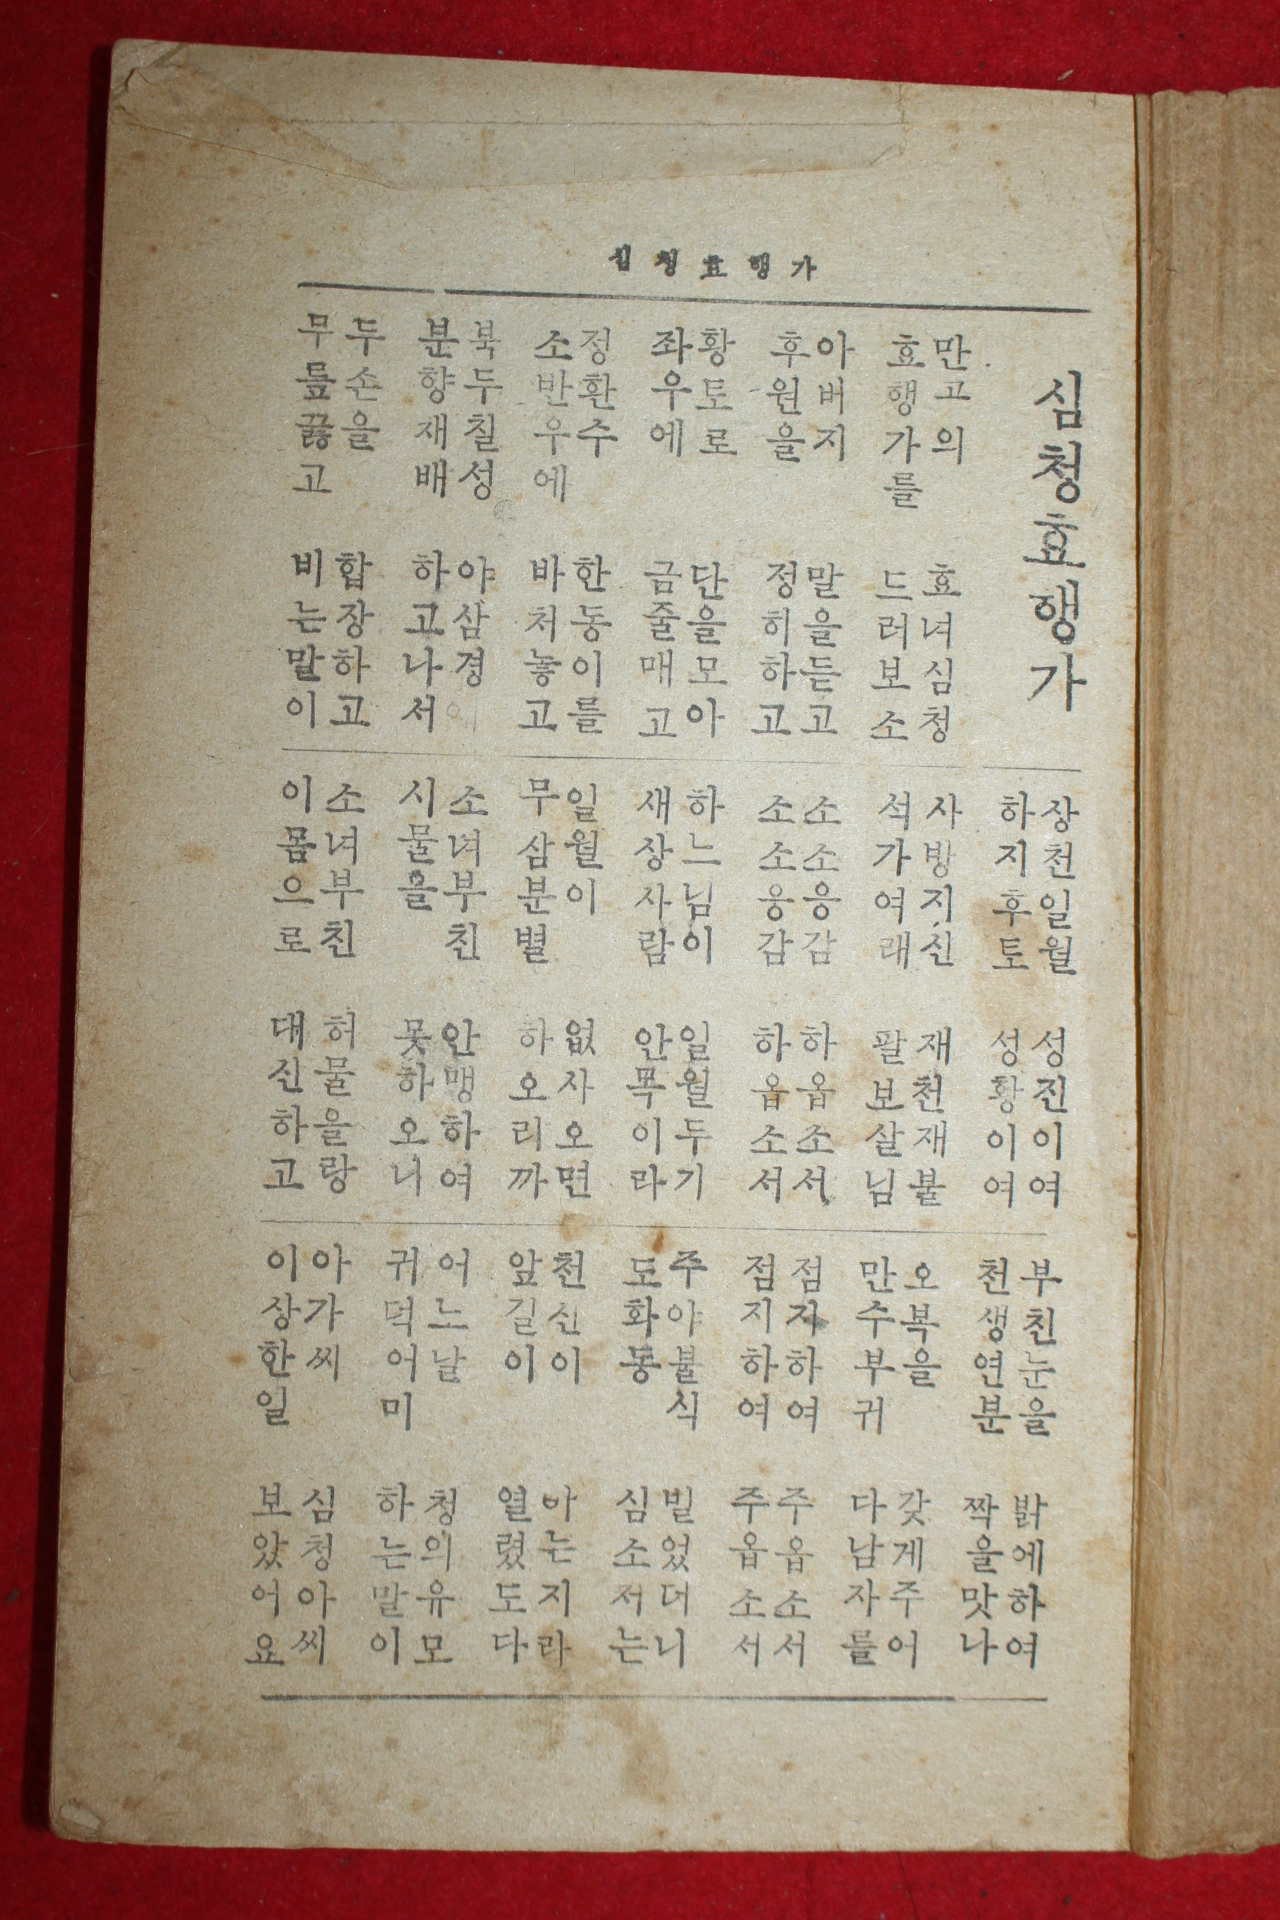 심청효행가
심청효행가
만고의 효녀심청
효행가를 드러보소
아버지 말을듣고
후원을 정히하고
황토로 단을모아
좌우에 금줄매고
정환수 한동이를
소반우에 바처놓고
북두칠성 야삼경에
분향재배 하고나서
두손을 합장하고
무릎끓고 비는말이
상천일월 성진이여
하지후토 성황이여
사방지신 재천재불
석가여래 팔보살님
소소응감 하옵소서
소소응감 하옵소서
하느님이 일월두기
새상사람 안목이라
일월이 없사오면
무삼분별 하오리까
소녀부친 안맹하여
시물을 못하오니
소녀부친 허물을랑
이몸으로 대신하고
부친눈을 밝에하여
천생연분 짝을맛나
오복을 갖게주어
만수부귀 다남자를
점지하여 주옵소서
점지하여 주옵소서
주야불식 빌었더니
도화동 심소저는
천신이 아는지라
앞길이 열렸도다
어느날 청의유모
귀덕어미 하는말이
아가씨 심청아씨
이상한일 보았어요